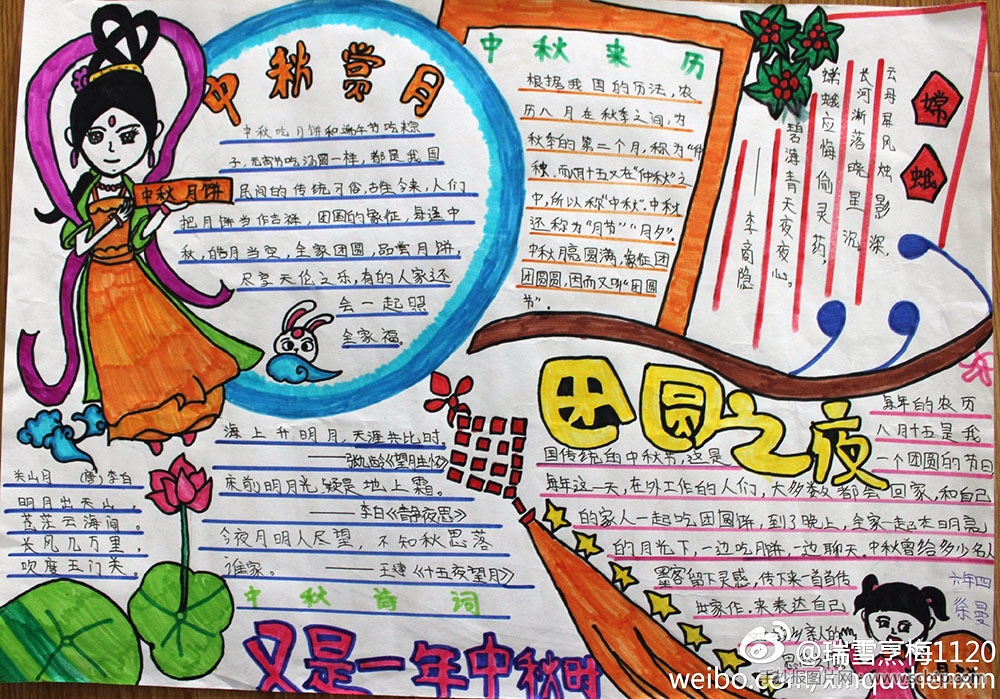 中秋赏月
中秋吃月饼和端午节吃粽
子，元宵节吃汤圆一样，都是我国
民间的传统习俗，古往今来，人们
把月饼当作吉祥，团圆的象征，每逢中
秋，皓月当空，全家团圆，品尝月饼，
尽享天伦之乐，有的人家还
会一起照
全家福
中秋月饼
中秋来历
根据我国的历法，农
历八月在秋季之间，为
秋季的第二个月，称为“仲
秋”而八月十五又在“仲秋”之
中，所以称“中秋”.中秋
还称为“月节”“月夕”.
中秋月亮圆满，象征团
团圆圆，因而又叫“团圆
节”.
嫦
娥
云母屏风烛影深，
长河渐落晓星沉
嫦娥应悔偷灵药，
碧海青天夜夜心。
——李商隐
团圆之夜
每年的农历
八月十五是我
国传统的中秋节，这是
一个团圆的节日
每年这一天，在外工作的人们，大多数都会回家，和自己
的家人一起吃团圆饼，到了晚上，全家一起在明亮
的月光下，一边吃月饼，一边聊天.中秋曾给多少名人
墨客留下灵感，传下来一首首传
世家作，来表达自己
海上升明月，天涯共此时。
——张九龄《望月怀远》
床前明月光，疑是地上霜。
——李白《静夜思》
今夜月明人尽望，不知秋思落
谁家。——王建《十五夜望月》
中秋诗词
关山月 (唐)李白
明月出天山，
苍茫云海间。
长风几万里，
吹度玉门关。
又是一年中秋时
六年四
徐曼
@瑞雪烹梅1120